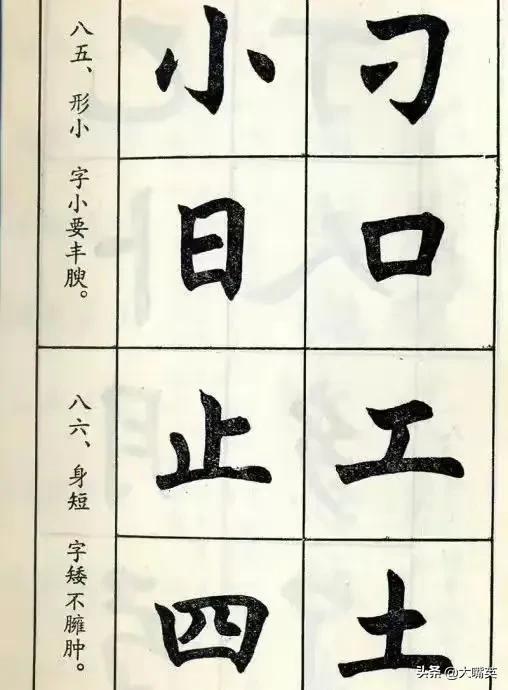 八五、形小 字小要丰腴。
小 刁
日 口
八六、身短 字矮不臃肿。
止 工
四 土
头条 @大嘴英